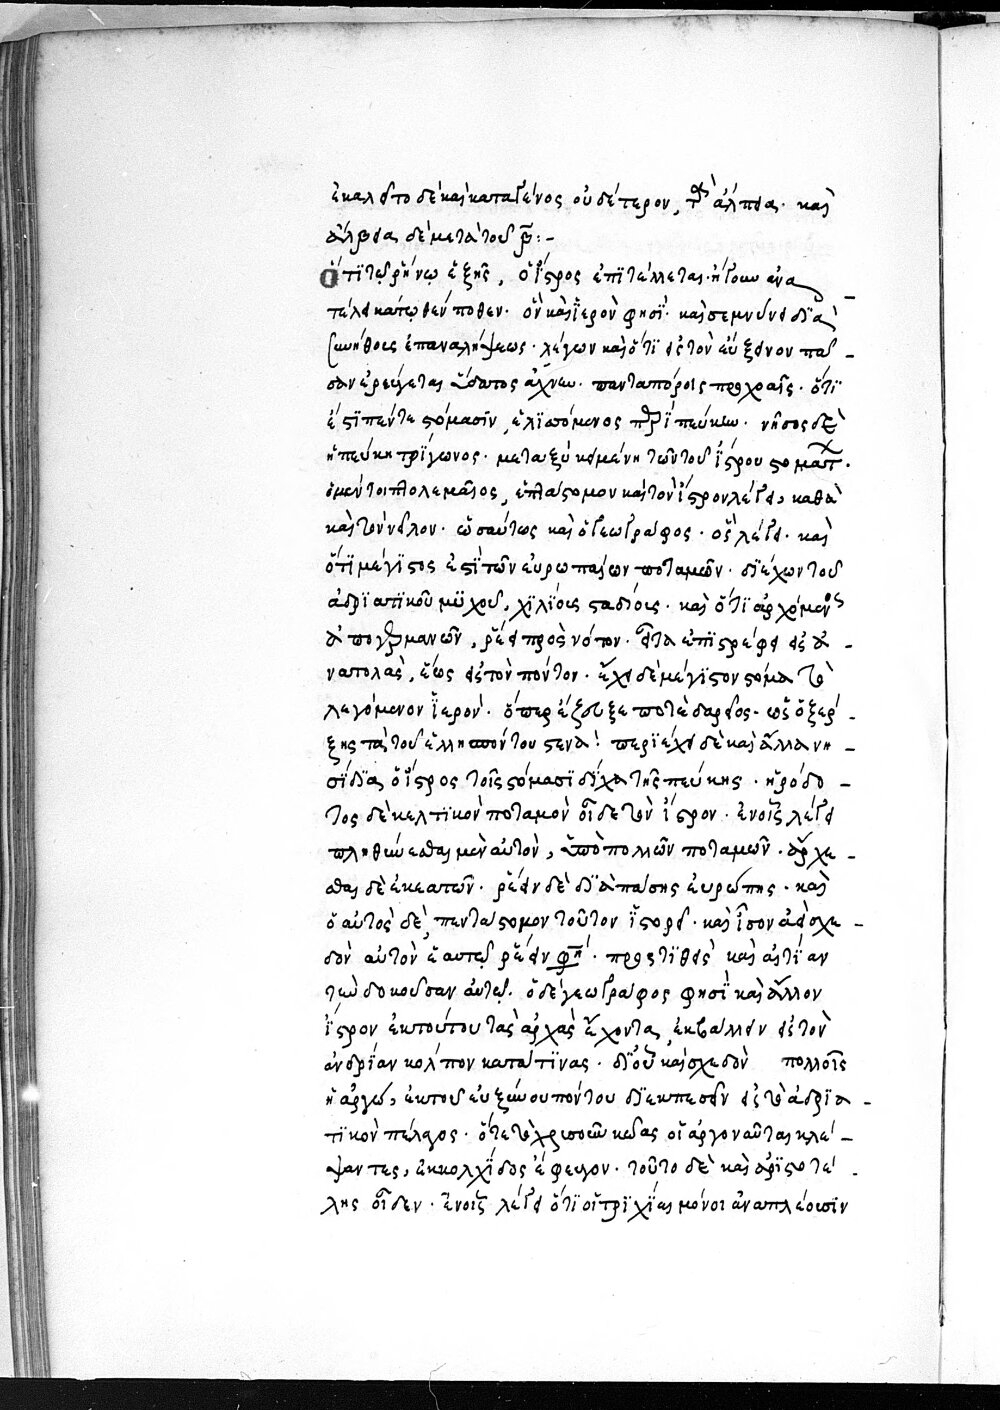 ἐκαλεῖτο δὲ καὶ κατὰ γένος οὐδέτερον, τὰ ἄλπεια· καὶ
ἄλβια δὲ μετὰ τοῦ β:-
Ὅτι τῷ ῥήνῳ ἑξῆς, ὁ ἴστρος ἐπιτέλλεται· ἤγουν ἀνα
τέλει κάτωθέν ποθεν. ὃν καὶ ἱερὸν φησί· καὶ σεμνύνει διὰ
συνήθους ἐπαναλήψεως· λέγων καὶ ὅτι εἰς τὸν εὔξεινον πᾶ-
σαν ἐρεύγεται ὕδατος ἄχνην· πενταπόροις προχοαῖς· ὅτι
ἐστὶ πέντε στόμασιν, ἑλισσόμενος περὶ πεύκην· νῆσος δὲ
ἡ πεύκη τρίγωνος· μεταξὺ κειμένη τῶν τοῦ ἴστρου στομάτων.
ὁ μέντοι πτολεμαῖος, ἑπτάστομον καὶ τὸν ἴστρον λέγει, καθὰ
καὶ τὸν νεῖλον· ὡσαύτως καὶ ὁ γεωγράφος· ὃς λέγει· καὶ
ὅτι μέγιστος ἐστὶ τῶν εὐρωπαίων ποταμῶν· διέχων τοῦ
ἀδριατικοῦ μυχοῦ, χιλίοις σταδίοις· καὶ ὅτι ἀρχόμενος
ἀπὸ γερμανῶν, ῥέει πρὸς νότον· εἶτα ἐπιστρέφει εἰς ἀ-
νατολὰς, ἕως εἰς τὸν πόντον· ἔχει δὲ μέγιστον στόμα τὸ
λεγόμενον ἱερὸν· ὅπερ ἔζευξε ποτὲ δαρεῖος· ὡς ὁ ξέρ-
ξης τὰ τοῦ ἑλλησπόντου στενά! περιέχει δὲ καὶ ἄλλα νη-
σίδια ὁ ἴστρος τοῖς στόμασι δίχα τῆς πεύκης· ἡρόδο-
τος δὲ κελτικὸν ποταμὸν οἶδε τὸν ἴστρον· ἐν οἷς λέγει
πληθύνεσθαι μὲν αὐτὸν, ὑπὸ πολλῶν ποταμῶν· ἄρχε-
σθαι δὲ ἐκ κελτῶν· ῥέειν δὲ διὰ πάσης εὐρώπης· καὶ
ὁ αὐτὸς δὲ, πεντάστομον τοῦτον ἱστορεῖ· καὶ ἴσον ἀεὶ σχε-
δὸν αὐτὸν ἑαυτῷ ῥέειν φησί· προστιθεὶς καὶ αἰτίαν
τὴν δοκοῦσαν αὐτῷ. ὁ δὲ γεωγράφος φησὶ καὶ ἄλλον
ἴστρον ἐκ τούτου τὰς ἀρχὰς ἔχοντα, ἐκβάλλειν εἰς τὸν
ἀνδρίαν κόλπον κατά τινας· δι' οὗ καὶ σχεδὸν πολλοῖς
ἡ ἀργὼ, ἐκ τοῦ εὐξείνου πόντου διεκπεσεῖν εἰς τὸ ἀδρια-
τικὸν πέλαγος· ὅτε τὸ χρυσοῦν κώδας οἱ ἀργοναῦται κλέ-
ψαντες, ἐκ κολχίδος ἔφευγον· τοῦτο δὲ καὶ ἀριστοτέ-
λης οἶδεν· ἐν οἷς λέγει ὅτι οἱ τριχίαι μόνοι ἀναπλέουσιν